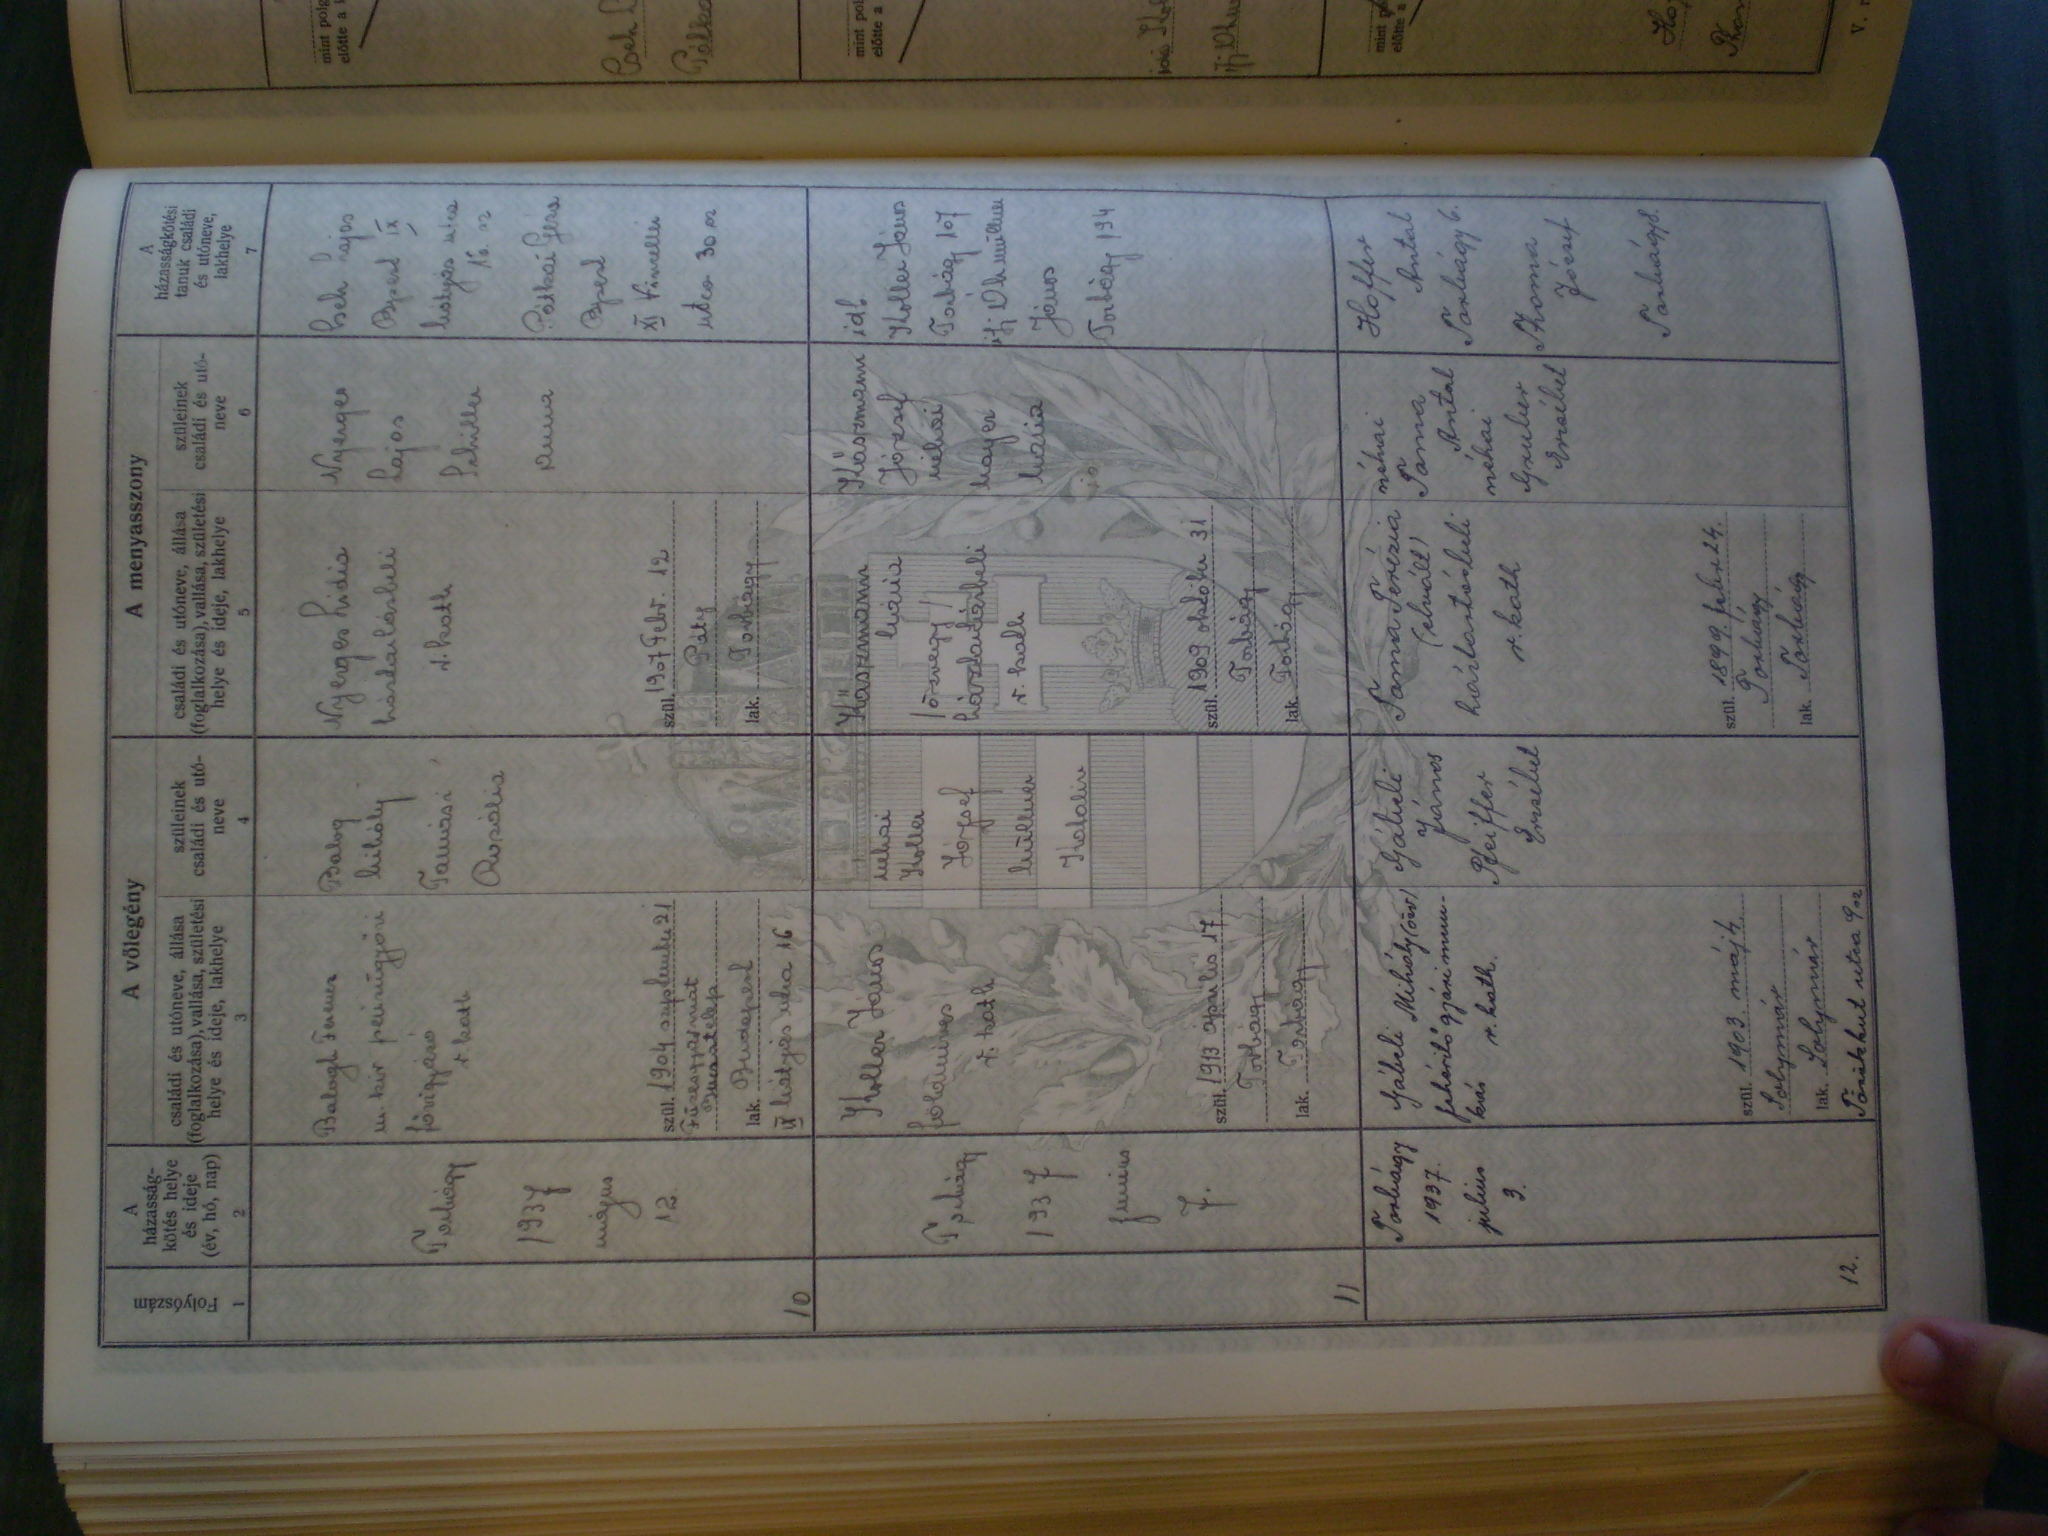 Folyószám
1
A
házasság-
kötés helye
és ideje
(év, hó, nap)
2
A vőlegény
családi és utóneve, állása
(foglalkozása), vallása, születési
helye és ideje, lakhelye
3
szüleinek
családi és utó-
neve
4
A menyasszony
családi és utóneve, állása
(foglalkozása), vallása, születési
helye és ideje, lakhelye
5
szüleinek
családi és utó-
neve
6
A
házasságkötési
tanuk családi
és utóneve,
lakhelye
7
10
Torbágy
1937
május
12.
Balogh Ferenc
m. kir pénzügyőri
fővigyázó
r. kath
szül. 1904 szeptember 21
Füzesgyarmat
lak. Budapest
IX Mátyás utca 16
Balog
Mihály
Tamási
Rozália
Nyerges Lidia
háztartásbeli
r. kath
szül. 1907 Febr. 12
Páty
lak. Torbágy
Nyerges
Lajos
Schiller
Anna
Cseh Lajos
Bpest IX
Mátyás utca
16. sz
Pátkai Géza
Bpest
XI
utca 30 sz
11
Torbágy
1937
junius
7.
Koller János
földmíves
r. kath
szül. 1913 április 17
Torbágy
lak. Torbágy
néhai
Koller
József
Müllner
Katalin
Kászmann
Mária
(özvegy)
háztartásbeli
r. kath
szül. 1909 október 31
Torbágy
lak. Torbágy
Kászmann
József
néhai
Mayer
Mária
id.
Koller János
Torbágy 107
ifj.
János
Torbágy 194
12.
Torbágy
1937.
julius
3.
Gábeli Mihály (özv)
fehérítőgyári mun-
kás r. kath.
szül. 1903. máj 4.
Solymár
lak. Solymár
Törökkut utca 9 sz
Gábeli
János
Pfeiffer
Erzsébet
Tama Terézia
(elvált)
háztartásbeli
r. kath
szül. 1899. febr. 24.
Torbágy
lak. Torbágy
néhai
Tama
Antal
néhai
Gruber
Erzsébet
Hoffer
Antal
Torbágy 6.
Thoma
József
Torbágy 8.
mint polg
előtte a l
Cseh L
Pátka
mint pol
előtte a
mint p
előtte
V. r